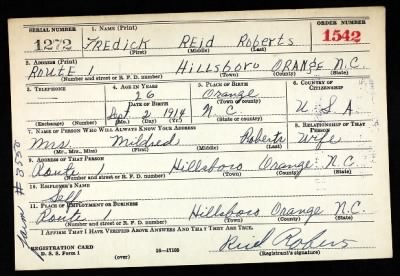 SERIAL NUMBER 1. NAME (Print) ORDER NUMBER
1272 FREDICK REID Roberts 1542
(First) (Middle) (Last)
2. ADDRESS (Print)
ROUTE 1 HILLSBORO ORANGE N.C.
(Number and street or R. F. D. number) (Town) (County) (State)
3. TELEPHONE 4. AGE IN YEARS 5. PLACE OF BIRTH 6. COUNTRY OF CITIZENSHIP
26 Orange
DATE OF BIRTH (Town or county)
Sept. 2 1914 N C U S A
(Exchange) (Number) (Mo.) (Day) (Yr.) (State or country)
7. NAME OF PERSON WHO WILL ALWAYS KNOW YOUR ADDRESS 8. RELATIONSHIP OF THAT PERSON
Mrs. Mildred Roberts Wife
(Mr., Mrs., Miss) (First) (Middle) (Last)
9. ADDRESS OF THAT PERSON
Route 1 Hillsboro Orange N.C.
(Number and street or R. F. D. number) (Town) (County) (State)
10. EMPLOYER'S NAME
Self
11. PLACE OF EMPLOYMENT OR BUSINESS
Route 1 Hillsboro Orange N.C.
(Number and street or R. F. D. number) (Town) (County) (State)
I AFFIRM THAT I HAVE VERIFIED ABOVE ANSWERS AND THAT THEY ARE TRUE.
REGISTRATION CARD
D. S. S. Form 1 16—17105 Reid Roberts
(Registrant's signature)